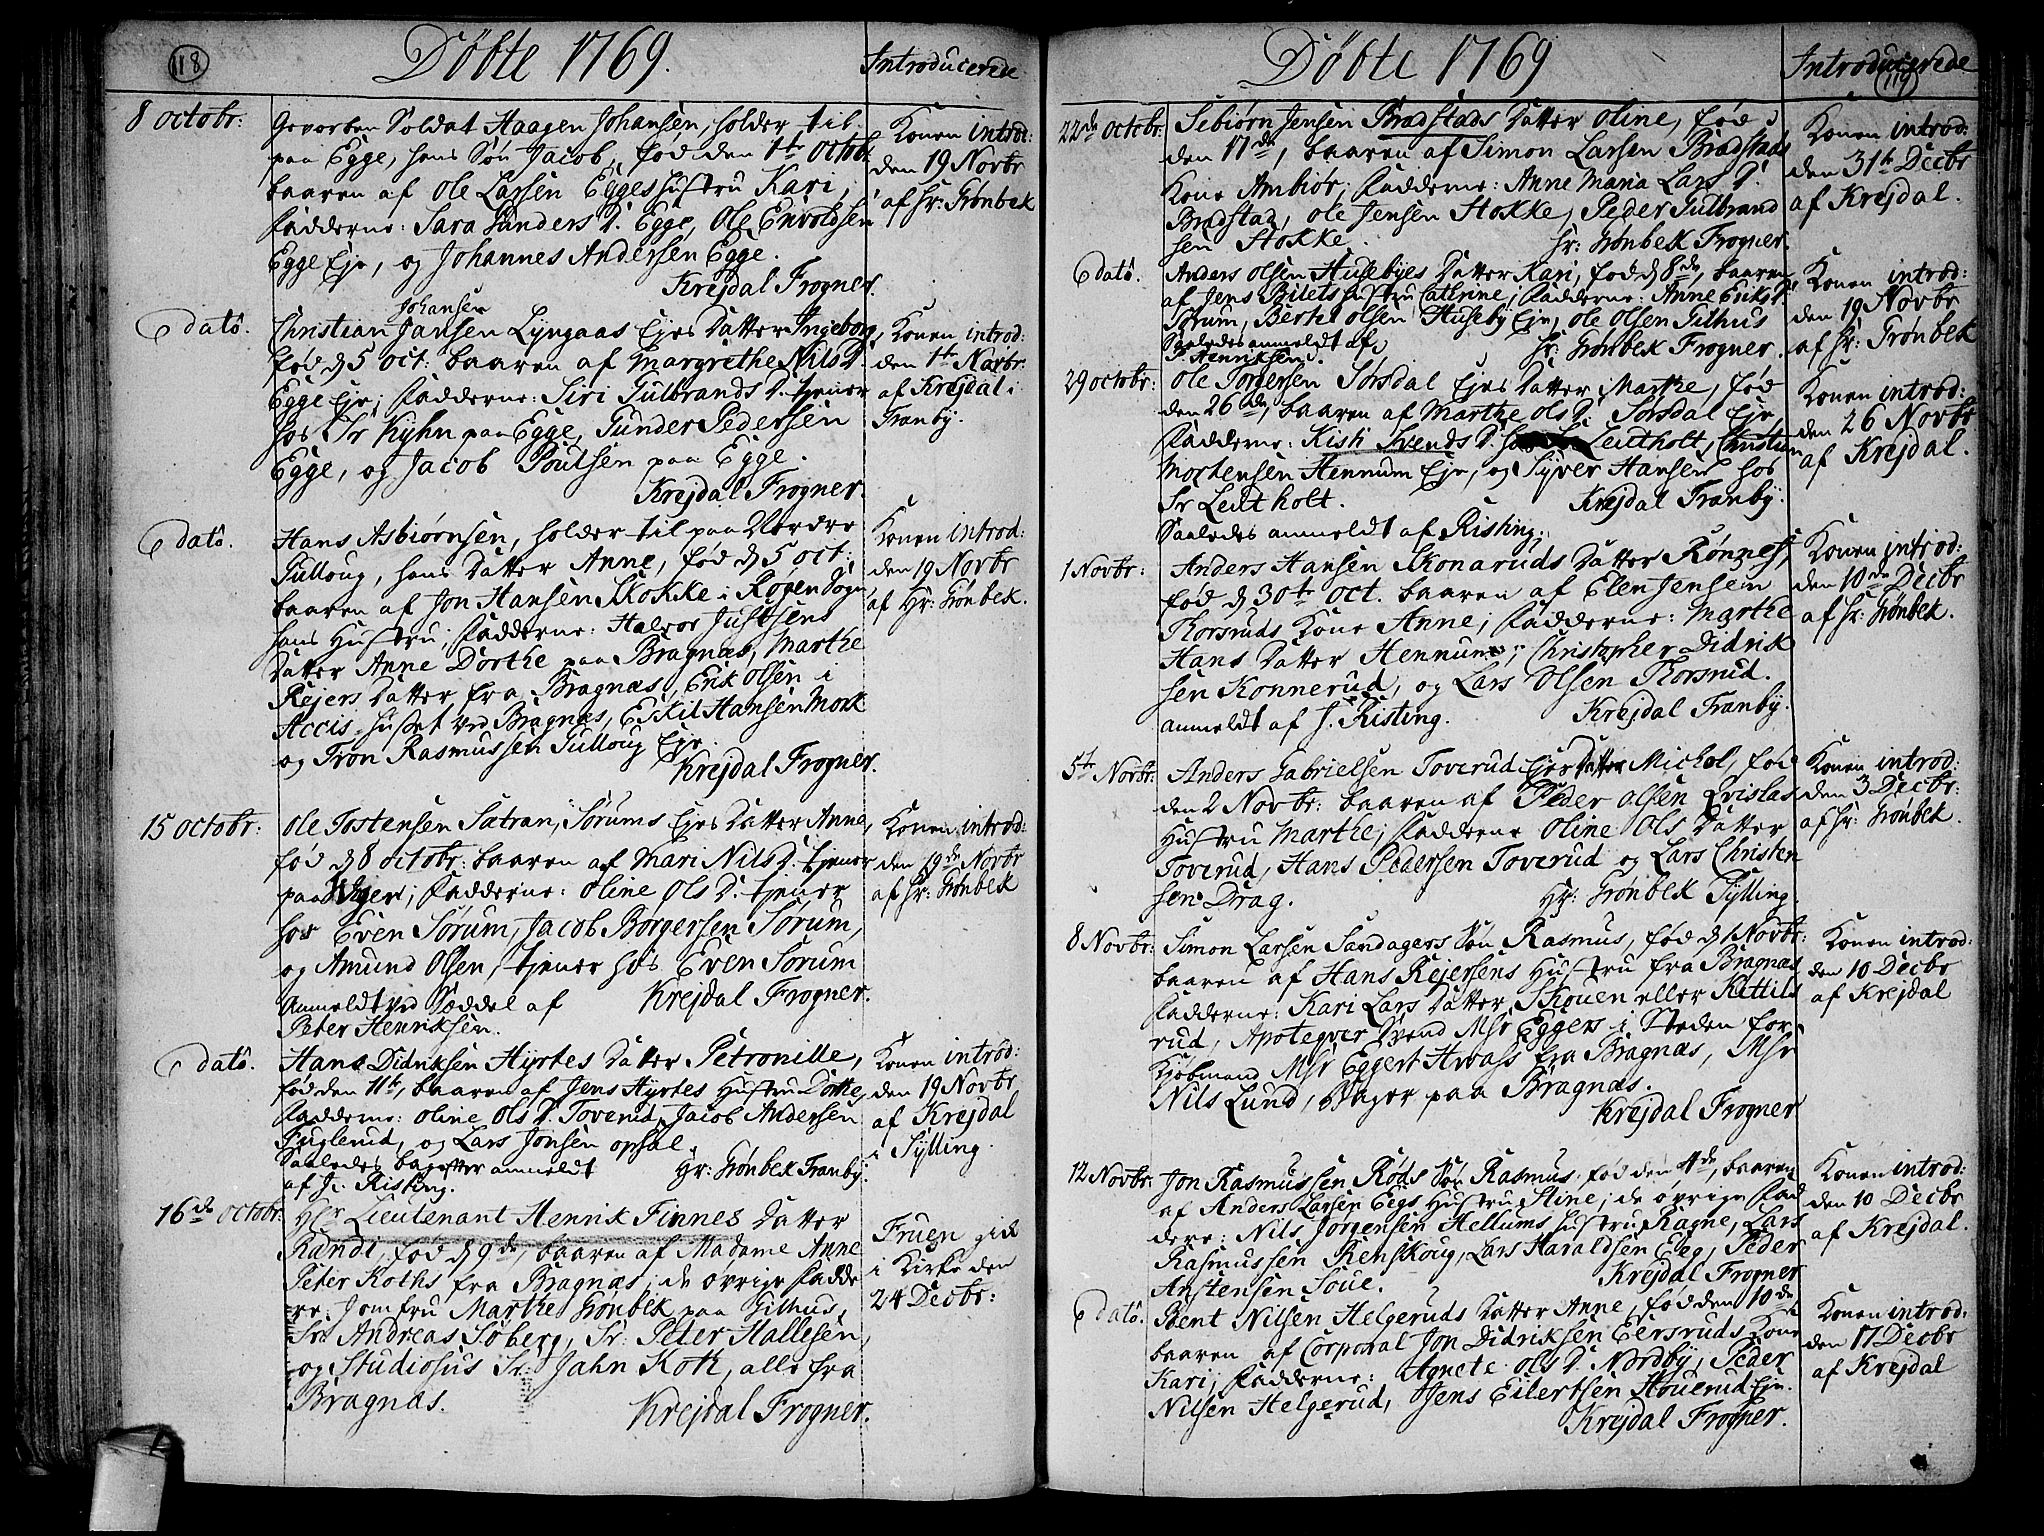 118
Döbte 1769.
Introducerede
8 octobr:
Gevorben Soldat Haagen Johansen, holder til
paa Egge, hans Søn Jacob, fød den 1te Octob:
baaren af Ole Larsen Egges hustru Kari,
Fadderne: Sara Gunders D. Egge, Ole Envoldsen
Egge Eje, og Johannes Andersen Egge.
Krejdal Frogner.
Konen introd:
den 19 Novbr
af Hr: Grønbek
E dato.
Johansen
Christian Jansen Lyngaas Ejes Datter Ingeborg,
fød d 5 oct: baaren af Margrethe Nils D.
Egge Eje; Fadderne: Siri Gulbrands D. tjener
hos Sr Kyhn paa Egge, Gunder Pedersen
Egge, og Jacob Poulsen paa Egge.
Krejdal Frogner.
Konen introd:
den 1te Novbr:
af Krejdal i
Tranby.
E dato.
Hans Asbiørnsen, holder til paa Nordre
Gulloug, hans Datter Anne, fød d 5 oct:
baaren af Jon Hansen Skokke i Røgen Sogn
hans Hustru; Fadderne: Halvor Justsens
Datter Anne Dorthe paa Bragnæs, Marthe
Rejers Datter fra Bragnæs, Erik Olsen i
Accis-Huset ved Bragnæs, Eskil Hansen Mork
og Tron Rasmussen Gulloug Eje.
Krejdal Frogner.
Konen introd:
den 19 Novbr
af Hr: Grønbek.
15 octobr:
Ole Tostensen Satran, Sørums Ejes Datter Anne,
fød d 8 octobr: baaren af Mari Nils D. tjener
paa Vejen; Fadderne: Oline Ols D. tjener
hos Even Sørum, Jacob Borgersen Sørum,
og Amund Olsen, tjener hos Even Sørum
Anmeldt ved Seddel af Krejdal Frogner.
Peter Henriksen.
Konen introd:
den 19de Novbr
af Hr: Grønbek
E dato.
Hans Didriksen Hyrtes Datter Petronille,
fød den 11te, baaren af Jens Hyrtes Hustru Dorthe,
Fadderne: Oline Ols D. Toverud, Jacob Andersen
Fuglerud, og Lars Jonsen opsal.
Saaledes bagefter anmeldt Hr: Grønbek Tranby.
af J: Risting.
Konen introd:
den 19 Novbr
af Krejdal
i Sylling.
16de octobr:
Hr Lieutenant Henrik Finnes Datter
Randi, fød d 9de, baaren af Madame Anne
Peter Koths fra Bragnæs; de øvrige Fadde
re: Jomfru Marthe Grønbek paa Gilhus,
Sr: Andreas Søberg, Sr: Peter Hallesen,
og Studiosus Sr: Jahn Koth, alle fra
Bragnæs.
Krejdal Frogner.
Fruen gik
i Kirke den
24 Decbr:
Döbte 1769
Introducerede
119
22de Octobr:
Sebiørn Jensen Bradstads Datter Oline, fød
den 17de, baaren af Simon Larsen Bradstads
Kone Ambiør; Fadderne: Anne Maria Lars D.
Bradstad, Ole Jensen Stokke, Peder Gulbrand
sen Stokke.
Hr: Grønbek Frogner.
Konen introd:
den 31te Decbr
af Krejdal.
E dato.
Anders Olsen Husebyes Datter Kari, fød d 8de, baaren
af Jens Bilets hustru Cathrine, Fadderne: Anne Eriks D.
Sørum, Berte Olsen Huseby Eje, Ole Olsen Gilhus
Saaledes anmeldt af Hr: Grønbek Frogner.
P. Henriksen.
Konen introd:
den 19 Novbr
af Hr: Grønbek
29 octobr:
Ole Torgersen Sørsdal Ejes Datter Marthe, fød
den 26de, baaren af Marthe Ols D. Sørsdal Eje,
Fadderne: Kisti Svends D. hos Leutholt, Christian
Mortensen Hennum Eje, og Syver Hansen hos
Sr Leutholt.
Krejdal Tranby.
Saaledes anmeldt af Risting.
Konen introd:
den 26 Novbr
af Krejdal.
1 Novbr:
Anders Hansen Skonaruds Datter Rønnef,
fød d 30te oct. baaren af Elen Jensen
Korsruds Kone Anne; Fadderne: Marthe
Hans Datter Hennum; Christopher Didrik
sen Konnerud, og Lars Olsen Korsrud.
anmeldt af J. Risting. Krejdal Tranby.
Konen introd:
den 10de Decbr
af Hr: Grønbek.
5te Novbr:
Anders Gabrielsen Toverud Ejes Datter Michol, fød
den 2 Novbr: baaren af Peder Olsen Qvislas
Hustru Marthe; Fadderne Oline Ols Datter
Toverud, Hans Pedersen Toverud og Lars Christen
sen Drag. Hr: Grønbek Sylling.
Konen introd:
den 3 Decbr:
af Hr: Grønbek.
8 Novbr:
Simon Larsen Sandagers Søn Rasmus, fød d 1 Novbr:
baaren af Hans Rejersens Hustru fra Bragnæs
Fadderne: Kari Lars Datter Skouen eller Kittils
rud, Apoteqver Svend Msr Eggers i Steden for
Kjøbmand Msr Eggert Hwass fra Bragnæs, Msr
Nils Lund, Bager paa Bragnæs.
Krejdal Frogner
Konen introd:
den 10 Decbr
af Krejdal
12 Novbr:
Jon Rasmussen Røds Søn Rasmus, fød den 4de, baaren
af Anders Larsen Eegs Hustru Stine; de øvrige Fad
dere: Nils Jørgensen Hellums hustru Ragne, Lars
Rasmussen Renskoug, Lars Haraldsen Eeg, Peder
Anstensen Soue.
Krejdal Frogner
Konen introd:
den 10 Decbr
af Krejdal.
E dato.
Bent Nilsen Helgeruds Datter Anne, fød den 10de
baaren af Corporal Jon Didriksen Eersruds Kone
Kari; Fadderne: Agnete Ols D. Nordby, Peder
Nilsen Helgerud, Jens Eilertsen Houerud Eje.
Krejdal Frogner.
Konen introd:
den 17 Decbr
af Krejdal